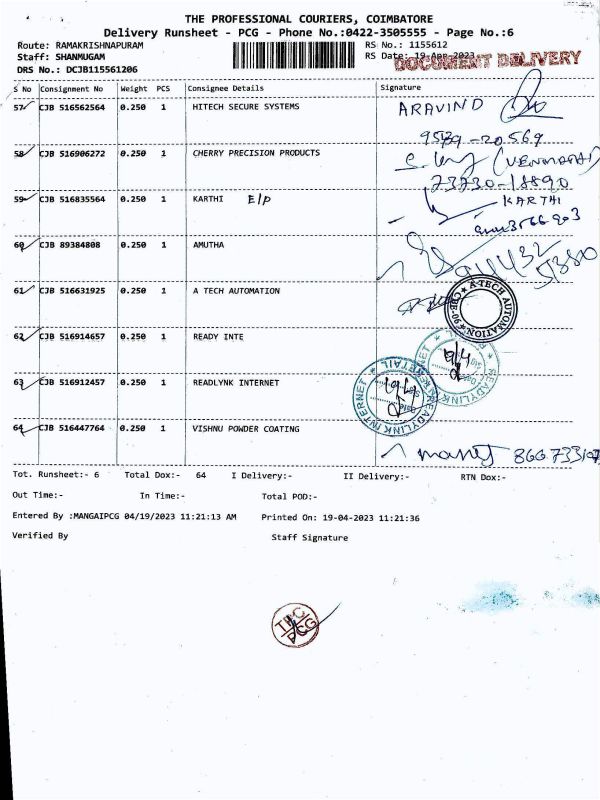 THE PROFESSIONAL COURIERS, COIMBATORE
Delivery Runsheet - PCG - Phone No.:0422-3505555 - Page No.:6
Route: RAMAKRISHNAPURAM
RS No.: 1155612
Staff: SHANMUGAM
RS Date: 19-Apr-2023
DOCUMENT DELIVERY
DRS No.: DCJB115561206
S No Consignment No Weight PCS Consignee Details Signature
57 CJB 516562564 0.250 1 HITECH SECURE SYSTEMS ARAVIND
58 CJB 516906272 0.250 1 CHERRY PRECISION PRODUCTS
73730-18890
59 CJB 516835564 0.250 1 KARTHI E/P KARTHI
60 CJB 89384808 0.250 1 AMUTHA
94432
61 CJB 516631925 0.250 1 A TECH AUTOMATION
A-TECH AUTOMATION
62 CJB 516914657 0.250 1 READY INTE
READYLINK INTERNET
63 CJB 516912457 0.250 1 READLYNK INTERNET
READYLINK INTERNET
64 CJB 516447764 0.250 1 VISHNU POWDER COATING
Tot. Runsheet:- 6 Total Dox:- 64 I Delivery:- II Delivery:- RTN Dox:-
Out Time:- In Time:- Total POD:-
Entered By :MANGAIPCG 04/19/2023 11:21:13 AM Printed On: 19-04-2023 11:21:36
Verified By Staff Signature